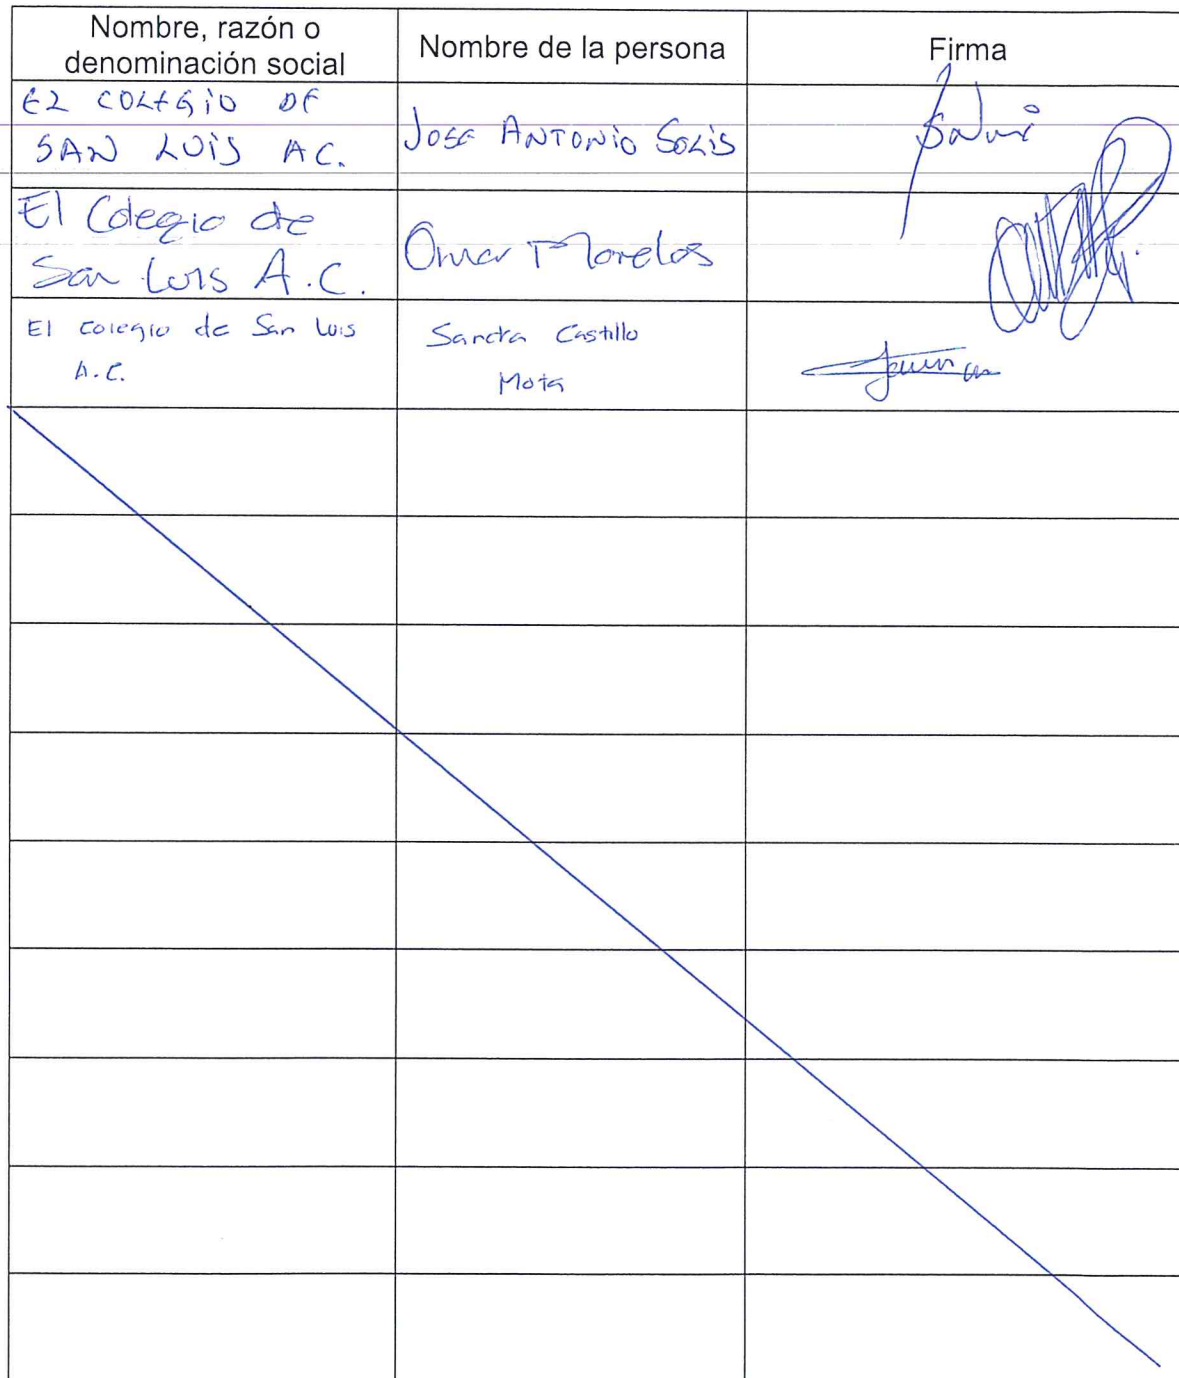 Nombre, razón o
denominación social
Nombre de la persona
Firma
EL COLEGIO DE
SAN LUIS AC.
JOSE ANTONIO SOLIS
El Colegio de
San Luis A.C.
Omar Morelos
El colegio de San Luis
A.C.
Sandra Castillo
Mota